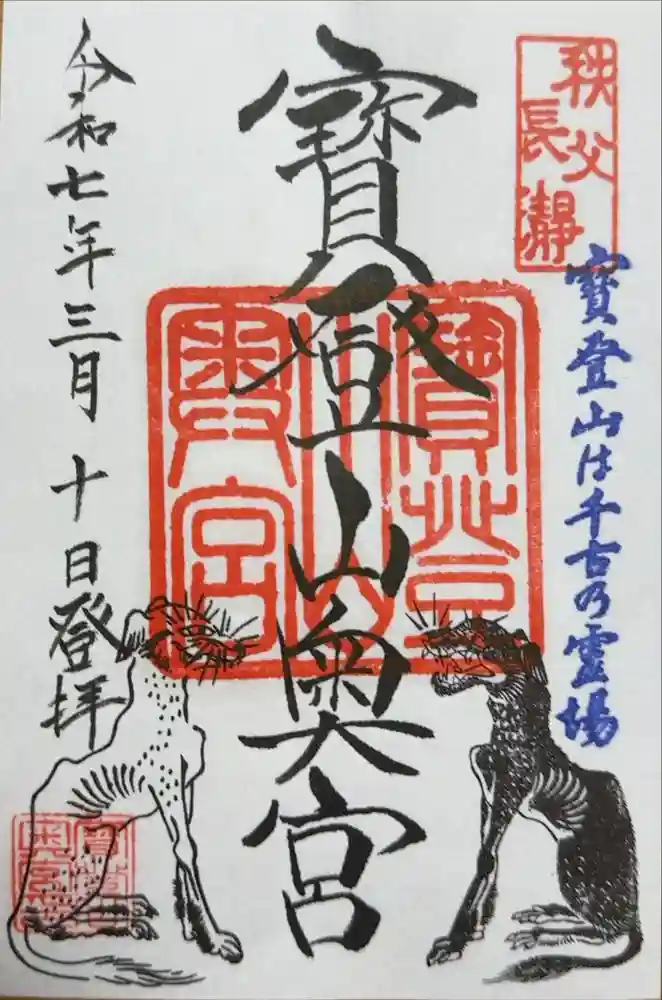 秩父
長瀞
寳登山は千古の霊場
寳登山奥宮
寳登山
奥宮
令和七年三月十日登拝